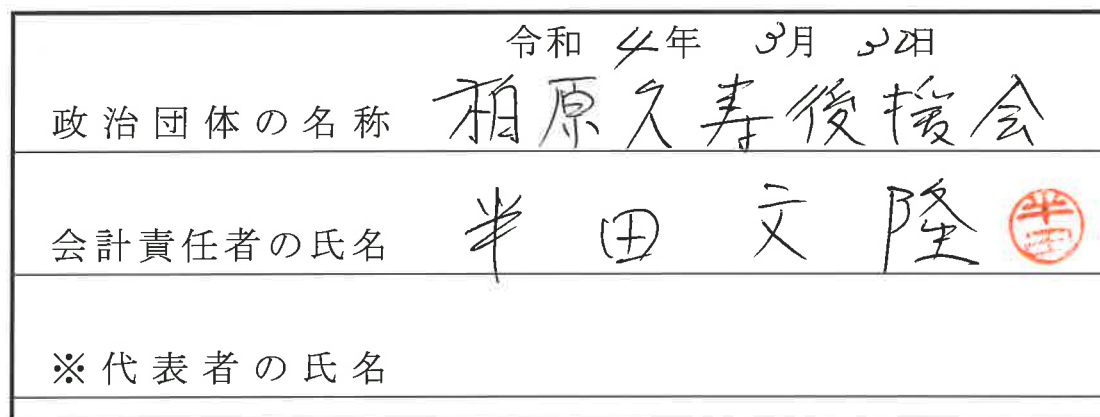 令和 4年 3月 30日
政治団体の名称 柏原久寿後援会
会計責任者の氏名 半田文隆 半田
※代表者の氏名